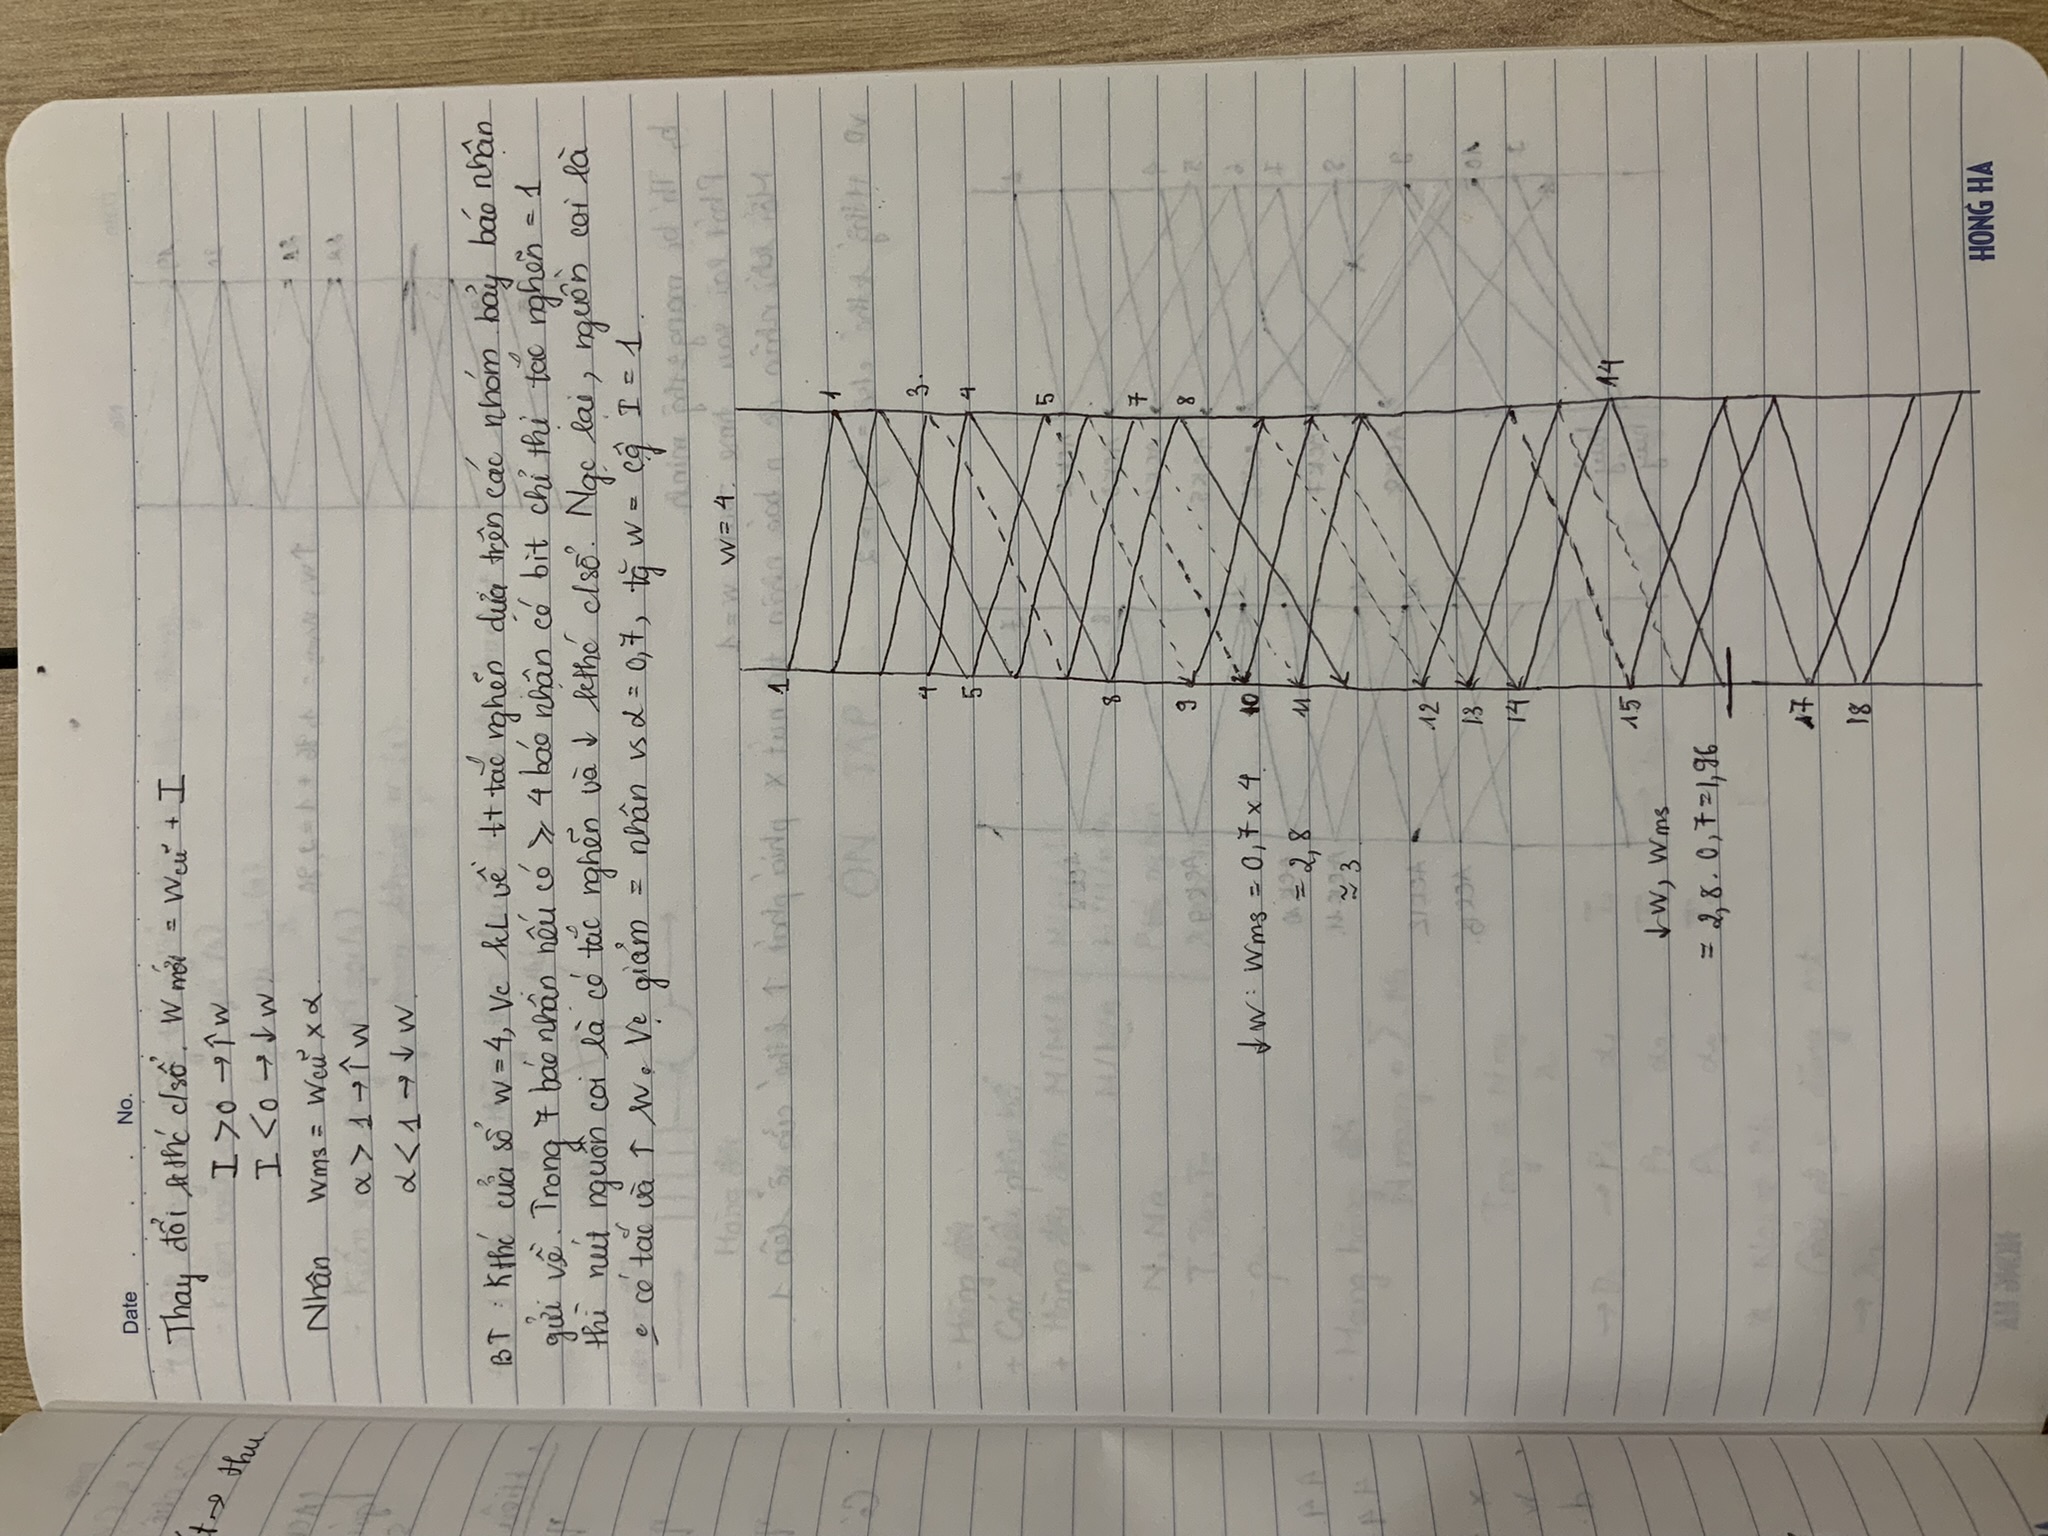 Date . . . No.
Thay đổi kthć c/sổ. W mới = Wcũ + I
I > 0 → ↑ W
I < 0 → ↓ W
Nhân Wms = Wcũ x α
α > 1 → ↑ W
α < 1 → ↓ W
BT : Kthć cửa sổ W = 4, Vc kL về tt tắc nghẽn dựa trên các nhóm bảy báo nhận
gửi về. Trong 7 báo nhận nếu có ≥ 4 báo nhận có bit chỉ thị tắc nghẽn = 1
thì nút nguồn coi là có tắc nghẽn và ↓ kthć c/sổ. Ngc lại, nguồn coi là
có tắc và ↑ W. Vc giảm = nhân vs α = 0,7, tg W = cộg I = 1.
W = 4.
1
1
3.
4
5
4
5
8
7
9
8
↓ W : Wms = 0,7 x 4 10
= 2,8 11
≈ 3
12
13
14
14
15
↓ W, Wms
= 2,8 . 0,7 = 1,96
17
18
HONG HA
t → thu.